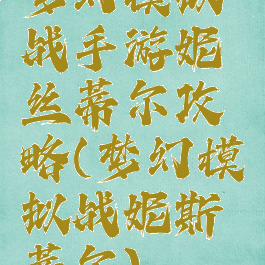 梦幻模拟
战手游妮
丝蒂尔攻
略(梦幻模
拟战妮斯
蒂尔)